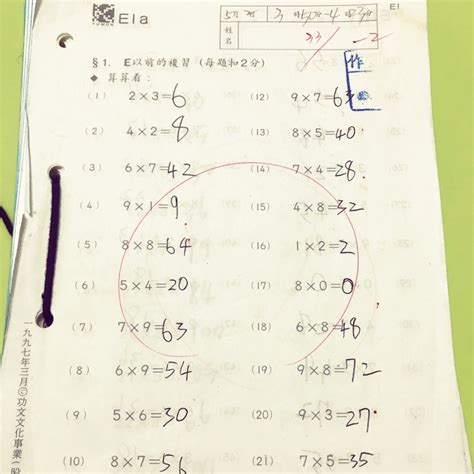 KUMON
E1a
E1
姓名
33
-2
作
§1. E以前的複習 (每題扣2分)
◆ 算算看：
(1) 2×3=6
(12) 9×7=63
(2) 4×2=8
(13) 8×5=40
(3) 6×7=42
(14) 7×4=28
(4) 9×1=9
(15) 4×8=32
(5) 8×8=64
(16) 1×2=2
(6) 5×4=20
(17) 8×0=0
(7) 7×9=63
(18) 6×8=48
(8) 6×9=54
(19) 9×8=72
(9) 5×6=30
(20) 9×3=27
(10) 8×7=56
(21) 7×5=35
一九九七年三月©功文文化事業(股